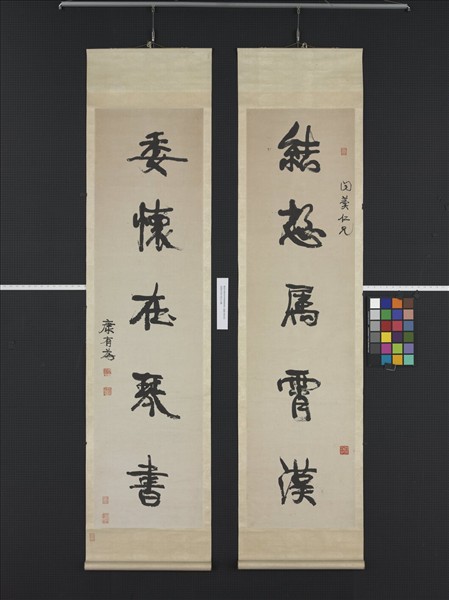 結想属霄漢
閏蓂仁兄
委懷在琴書
康有為